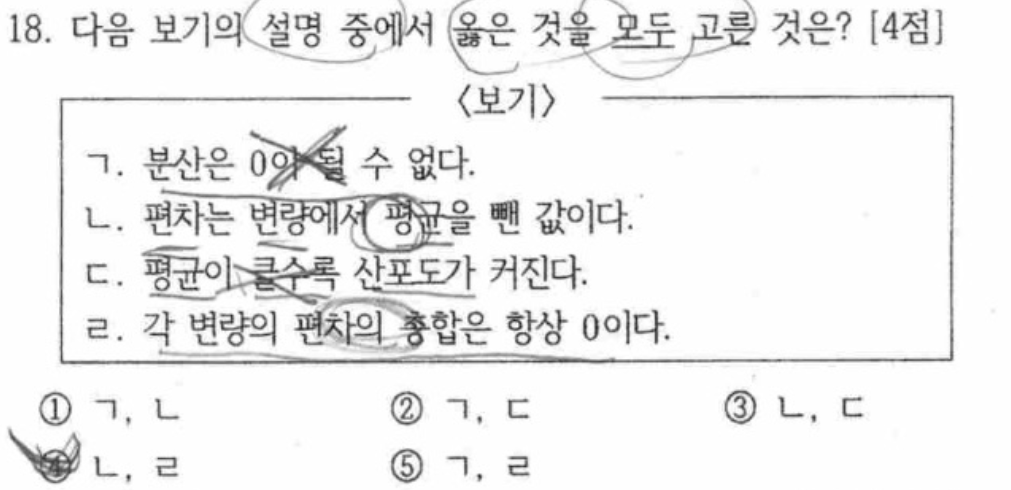 18. 다음 보기의 설명 중에서 옳은 것을 모두 고른 것은? [4점]
〈보기〉
ㄱ. 분산은 0이 될 수 없다.
ㄴ. 편차는 변량에서 평균을 뺀 값이다.
ㄷ. 평균이 클수록 산포도가 커진다.
ㄹ. 각 변량의 편차의 총합은 항상 0이다.
① ㄱ, ㄴ ② ㄱ, ㄷ ③ ㄴ, ㄷ
④ ㄴ, ㄹ ⑤ ㄱ, ㄹ